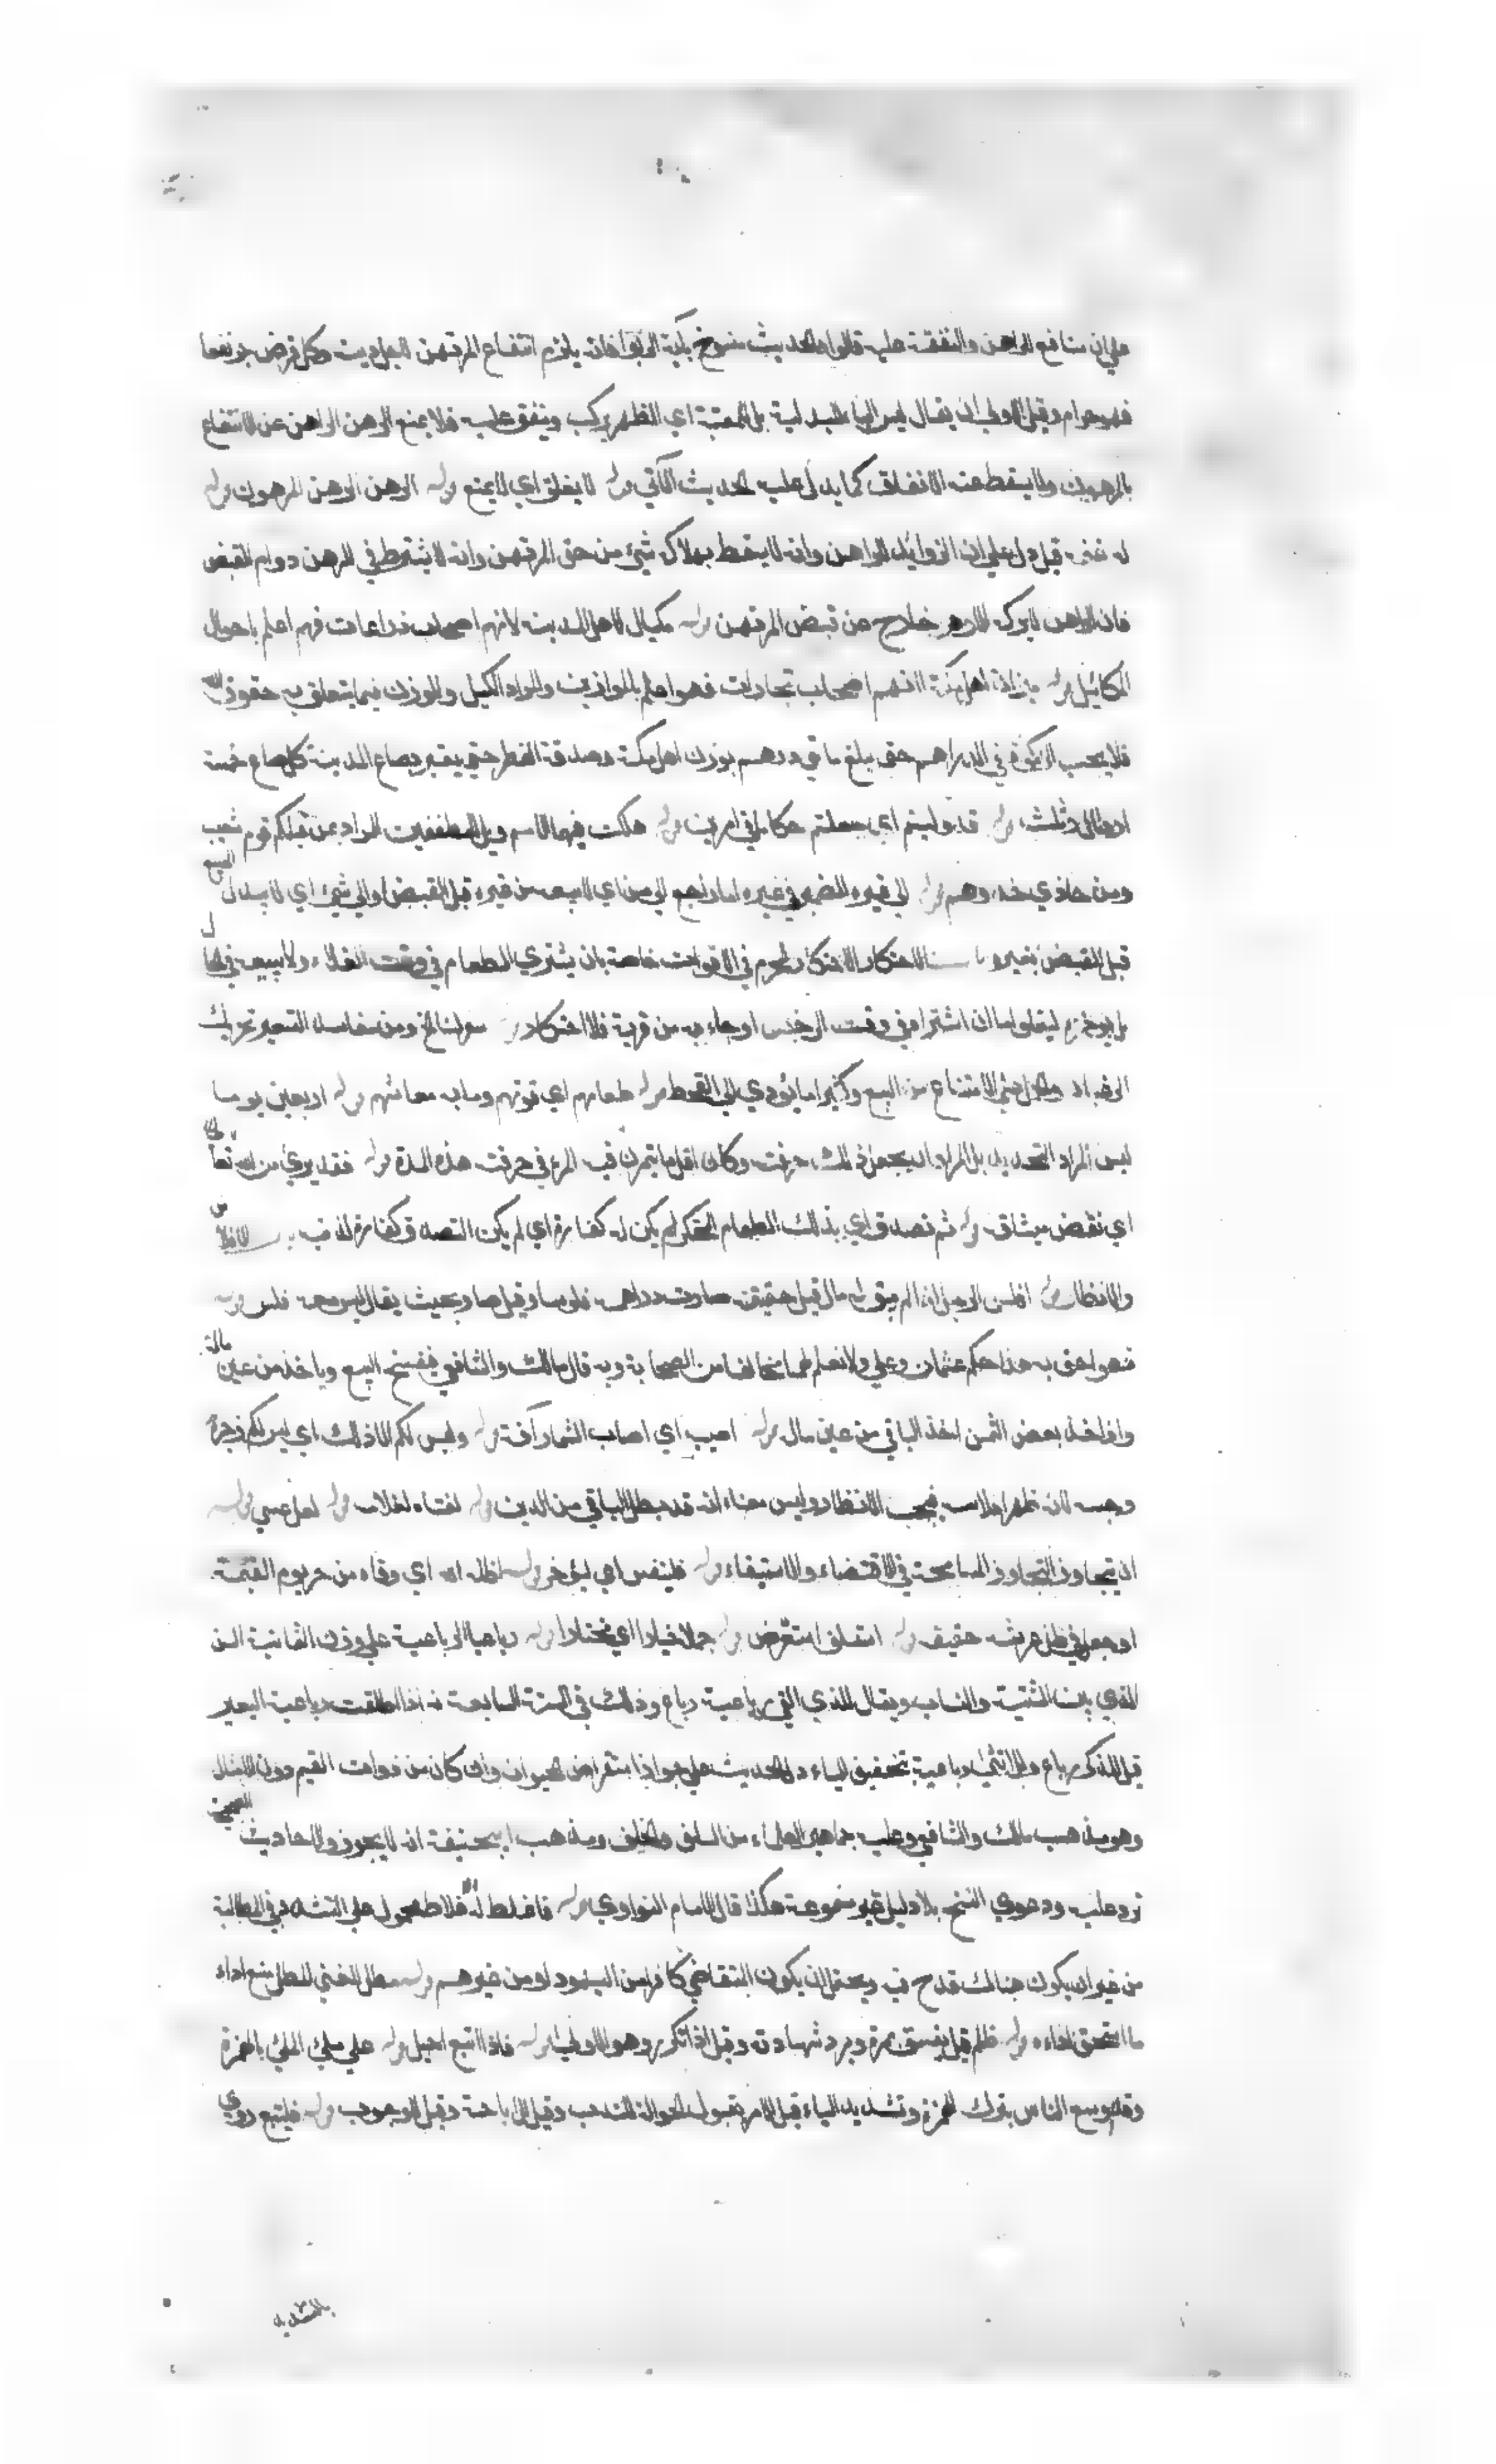 علي ان منافع للراهن والنفقة عليه قالوا والحديث منسوخ بآية الربوا فانه يلزم انتفاع المرتهن بدينه وكل قرض جر نفعا
فهو حرام وقيل الاولي ان يقال ليس الباء للبدلية بل للمعية اي الظهر يركب وينفق عليه فلا يمنع الرهن الراهن عن الانتفاع
بالمرهون ولا يسقط عنه الانفاق كما يدل عليه الحديث الآتي قوله لا يغلق اي لا يمنع قوله الرهن الرهن المرهون قوله
له غنمه قيل دل علي ان الزوائد للراهن وانه لا يسقط بهلاكه شيئ من حق المرتهن وانه لا يشترط في الرهن دوام القبض
فان الراهن لا يركب الا وهو خارج عن قبض المرتهن قوله مكيال اهل المدينة لانهم اصحاب زراعات فهم اعلم باحوال
المكائيل قوله ميزان اهل مكة لانهم اصحاب تجارات فهو اعلم بالموازين والمراد الكيل والوزن فيما يتعلق به حقوق الله
فلا يجب الزكوة في الدراهم حتى يبلغ مأتي درهم بوزن اهل مكة وصدقة الفطر حتي يعتبر بصاع المدينة كل صاع خمسة
ارطال وثلث قوله قد وليتم اي جعلتم حكاما في امرين قوله هلكت فيهما الامم ويل للمطففين المراد بمن قبلكم قوم شعيب
ومن قوله الي غيره الضمير في غيره اما راجع الي من اي لا يبيعه من غيره قبل القبض او الي شيئ اي لا يبدل المبيع
قبل القبض بغيره باب الاحتكار الاحتكار المحرم في الاقوات خاصة بان يشتري الطعام في وقت الغلاء ولا يبيعه في الحال
بل يدخره ليغلو اما ان اشتراه في وقت الرخص او جاء به من قرية فلا احتكار قوله سعر لنا الخ ومن مفاسد التسعير تحريك
الرغبات والحمل علي الامتناع من البيع وكثيرا ما يؤدي الي القحط قوله طعامهم اي قوتهم وما به معاشهم قوله اربعين يوما
ليس المراد التحديد بل المراد ان يجعل ذلك حرفته وكان اقل ما يتمرن فيه المرء في حرفته هذه المدة قوله فقد بري من الله تعالى
اي نقض ميثاقه قوله ثم تصدق اي بذلك الطعام المحتكر لم يكن له كفارة اي لم يكن التصدق كفارة لذنبه باب الافلاس
والانظار قوله افلس الرجل اذا لم يبق له مال قيل حقيقته صارت دراهمه فلوسا وقيل صار بحيث يقال ليس معه فلس قوله
فهو احق به هذا حكم عثمان وعلي ولا نعلم لهما مخالفا من الصحابة وبه قال مالك والشافعي فيفسخ البيع وياخذ من عين ماله
واذا اخذ بعض الثمن اخذ الباقي من عين ماله قوله اصيب اي اصاب الثمار آفة قوله وليس لكم الا ذلك اي ليس لكم زجره
وحبسه لانه ظهر افلاسه فيجب الانظار وليس معناه انه قد بطل الباقي من الدين قوله لفتاه لغلامه قوله لعل عسي قوله
ان يتجاوز التجاوز المسامحة في الاقتضاء والاستيفاء قوله فلينفس اي ليؤخر قوله اظله الله اي وقاه من حر يوم القيمة
او جعل في ظل عرشه حقيقة قوله استسلف استقرض قوله جملا خيارا اي مختارا قوله رباعيا الرباعية علي وزن الثمانية السن
الذي بين الثنية والناب ويقال للذي القي رباعية رباع وذلك في السنة السابعة نه اذا طلعت رباعية البعير
قيل للذكر رباع وللانثي رباعية بتخفيف الياء دل الحديث علي جواز استقراض الحيوان وان كان من ذوات القيم دون الامثال
وهو مذهب مالك والشافعي وعليه جماهير العلماء من السلف والخلف ومذهب ابي حنيفة انه لا يجوز والاحاديث الصحيحة
ترد عليه ودعوي النسخ بلا دليل غير مسموعة هكذا قال الامام النواوي قوله فاغلظ له الاغلاط محمول علي التشدد في المطالبة
من غير ان يكون هنالك قدح فيه ويحتمل ان يكون المتقاضي كافرا من اليهود او من غيرهم قوله مطل الغني المطل منع اداء
ما استحق اداءه قوله ظلم قيل يفسق بمرة ويرد شهادته وقيل اذا تكرر وهو الاولي قوله فاذا اتبع احيل قوله علي ملئ الملئ بالهمزة
وقد توسع الناس بترك الهمزة وتشديد الياء قيل الامر بقبول الحوالة للندب وقيل للاباحة وقيل للوجوب قوله فليتبع روي
بالتشديد